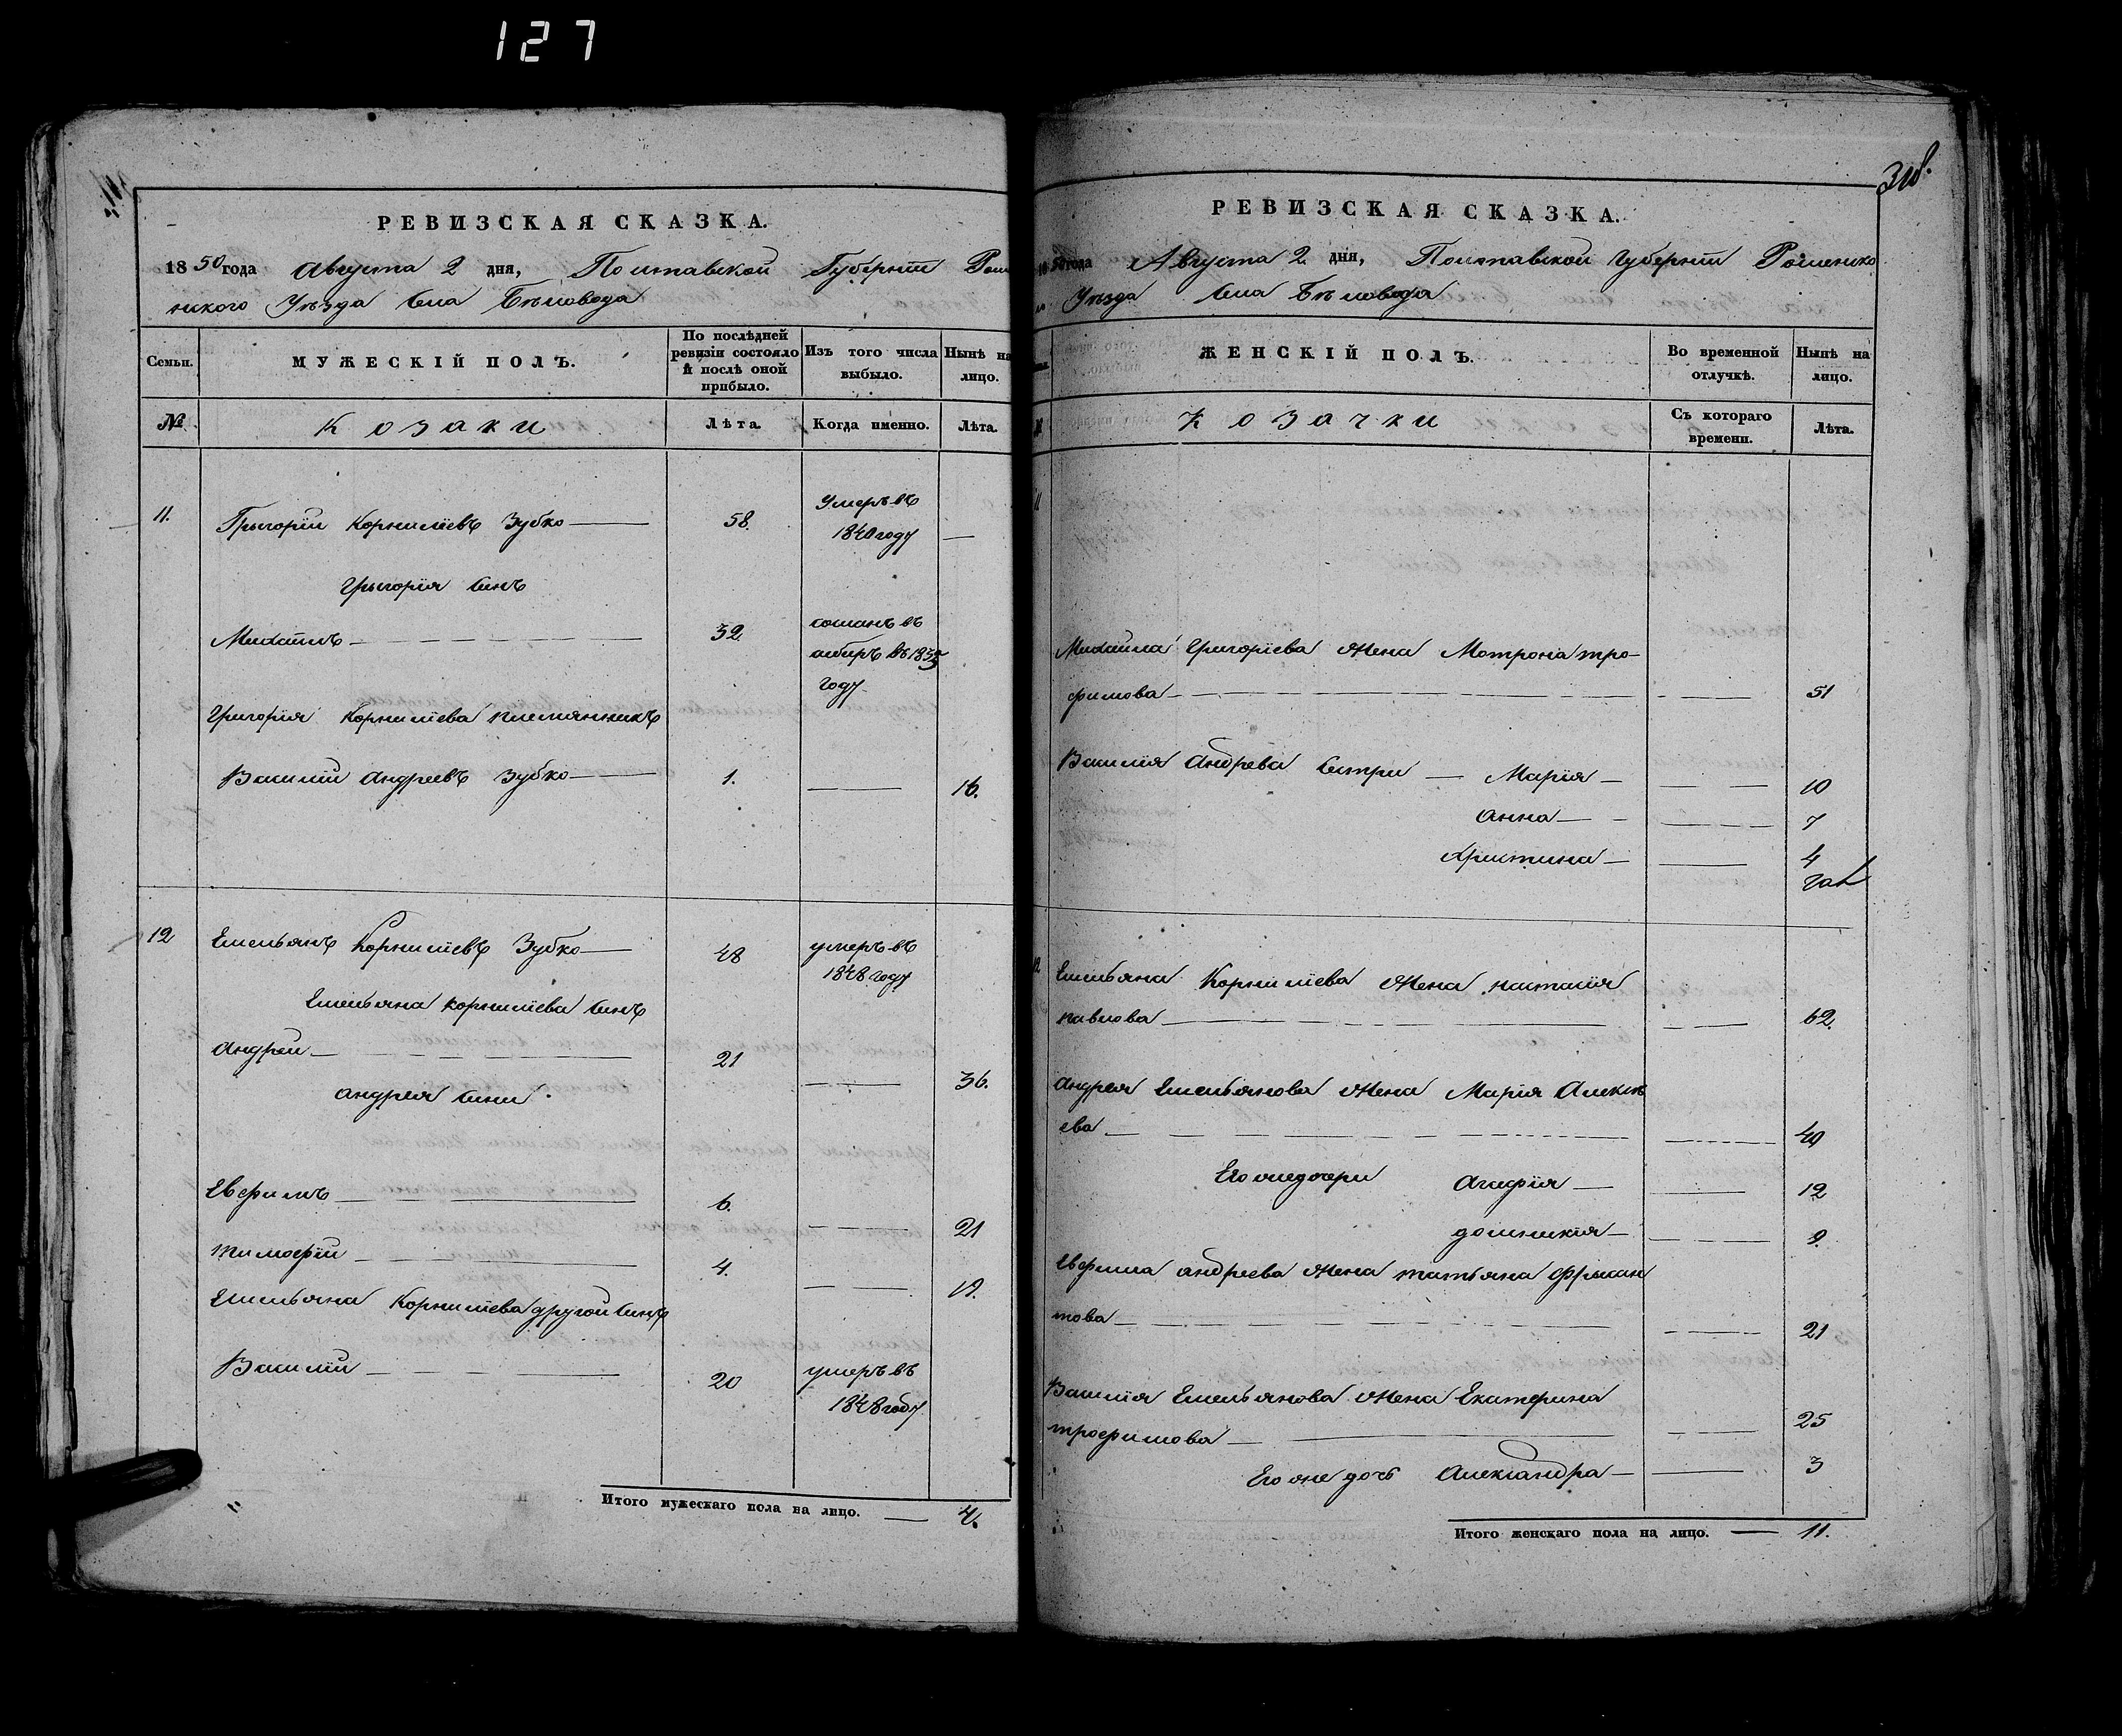 127
РЕВИЗСКАЯ СКАЗКА.
1850 года Августа 2 дня, Полтавской Губерніи Роме
нского Уѣзда Села Бѣловода
Семьи.
МУЖЕСКІЙ ПОЛЪ.
По послѣдней ревизіи состояло и послѣ оной прибыло.
Изъ того числа выбыло.
Нынѣ на лицо.
№
Козаки
Лѣта.
Когда именно.
Лѣта.
11. Грыгорій Корнилієвъ Зубко — 58. Умеръ въ
1840 году —
Грыгорія Синъ
Михаилъ — 32 сосланъ въ
сибиръ въ 1835
году
Григорія Корниліева племянникъ
Василій Андреевъ Зубко — 1. — 16.
12 Емельянъ Корниліевъ Зубко — 48 умеръ въ
1848 году
Емельяна Корниліева Синъ
Андрей — 21 — 36.
Андрея Сини
Евфимъ — 6. — 21
Тимофій — 4. — 19.
Емельяна Корниліева другой Синъ
Василій — 20 умеръ въ
1848 году
Итого мужескаго пола на лицо. — 4.
РЕВИЗСКАЯ СКАЗКА.
1850 года Августа 2 дня, Полтавской Губерніи Роменско
Уѣзда Села Бѣловода
ЖЕНСКІЙ ПОЛЪ.
Во временной отлучкѣ.
Нынѣ на лицо.
Козачки
Съ котораго времени.
Лѣта.
11
Михаила Григоріева Жена Мотрона тро-
фимова — — 51
Василія Андрева Сестри — Марія — — 10
Анна — — 7
Христина — — 4
12
Емельяна Корниліева Жена Наталія
Павлова — — 62
Андрея Емельянова Жена Марія Алексѣ
ева — — 40
Его же дочери Агафія — — 12
Домникія — — 9.
Евфима Андреева Жена Татьяна
това — — 21
Василія Емельянова Жена Екатерина
трофимова — — 25
Его же дочь Александра — — 3
Итого женскаго пола на лицо. — 11.